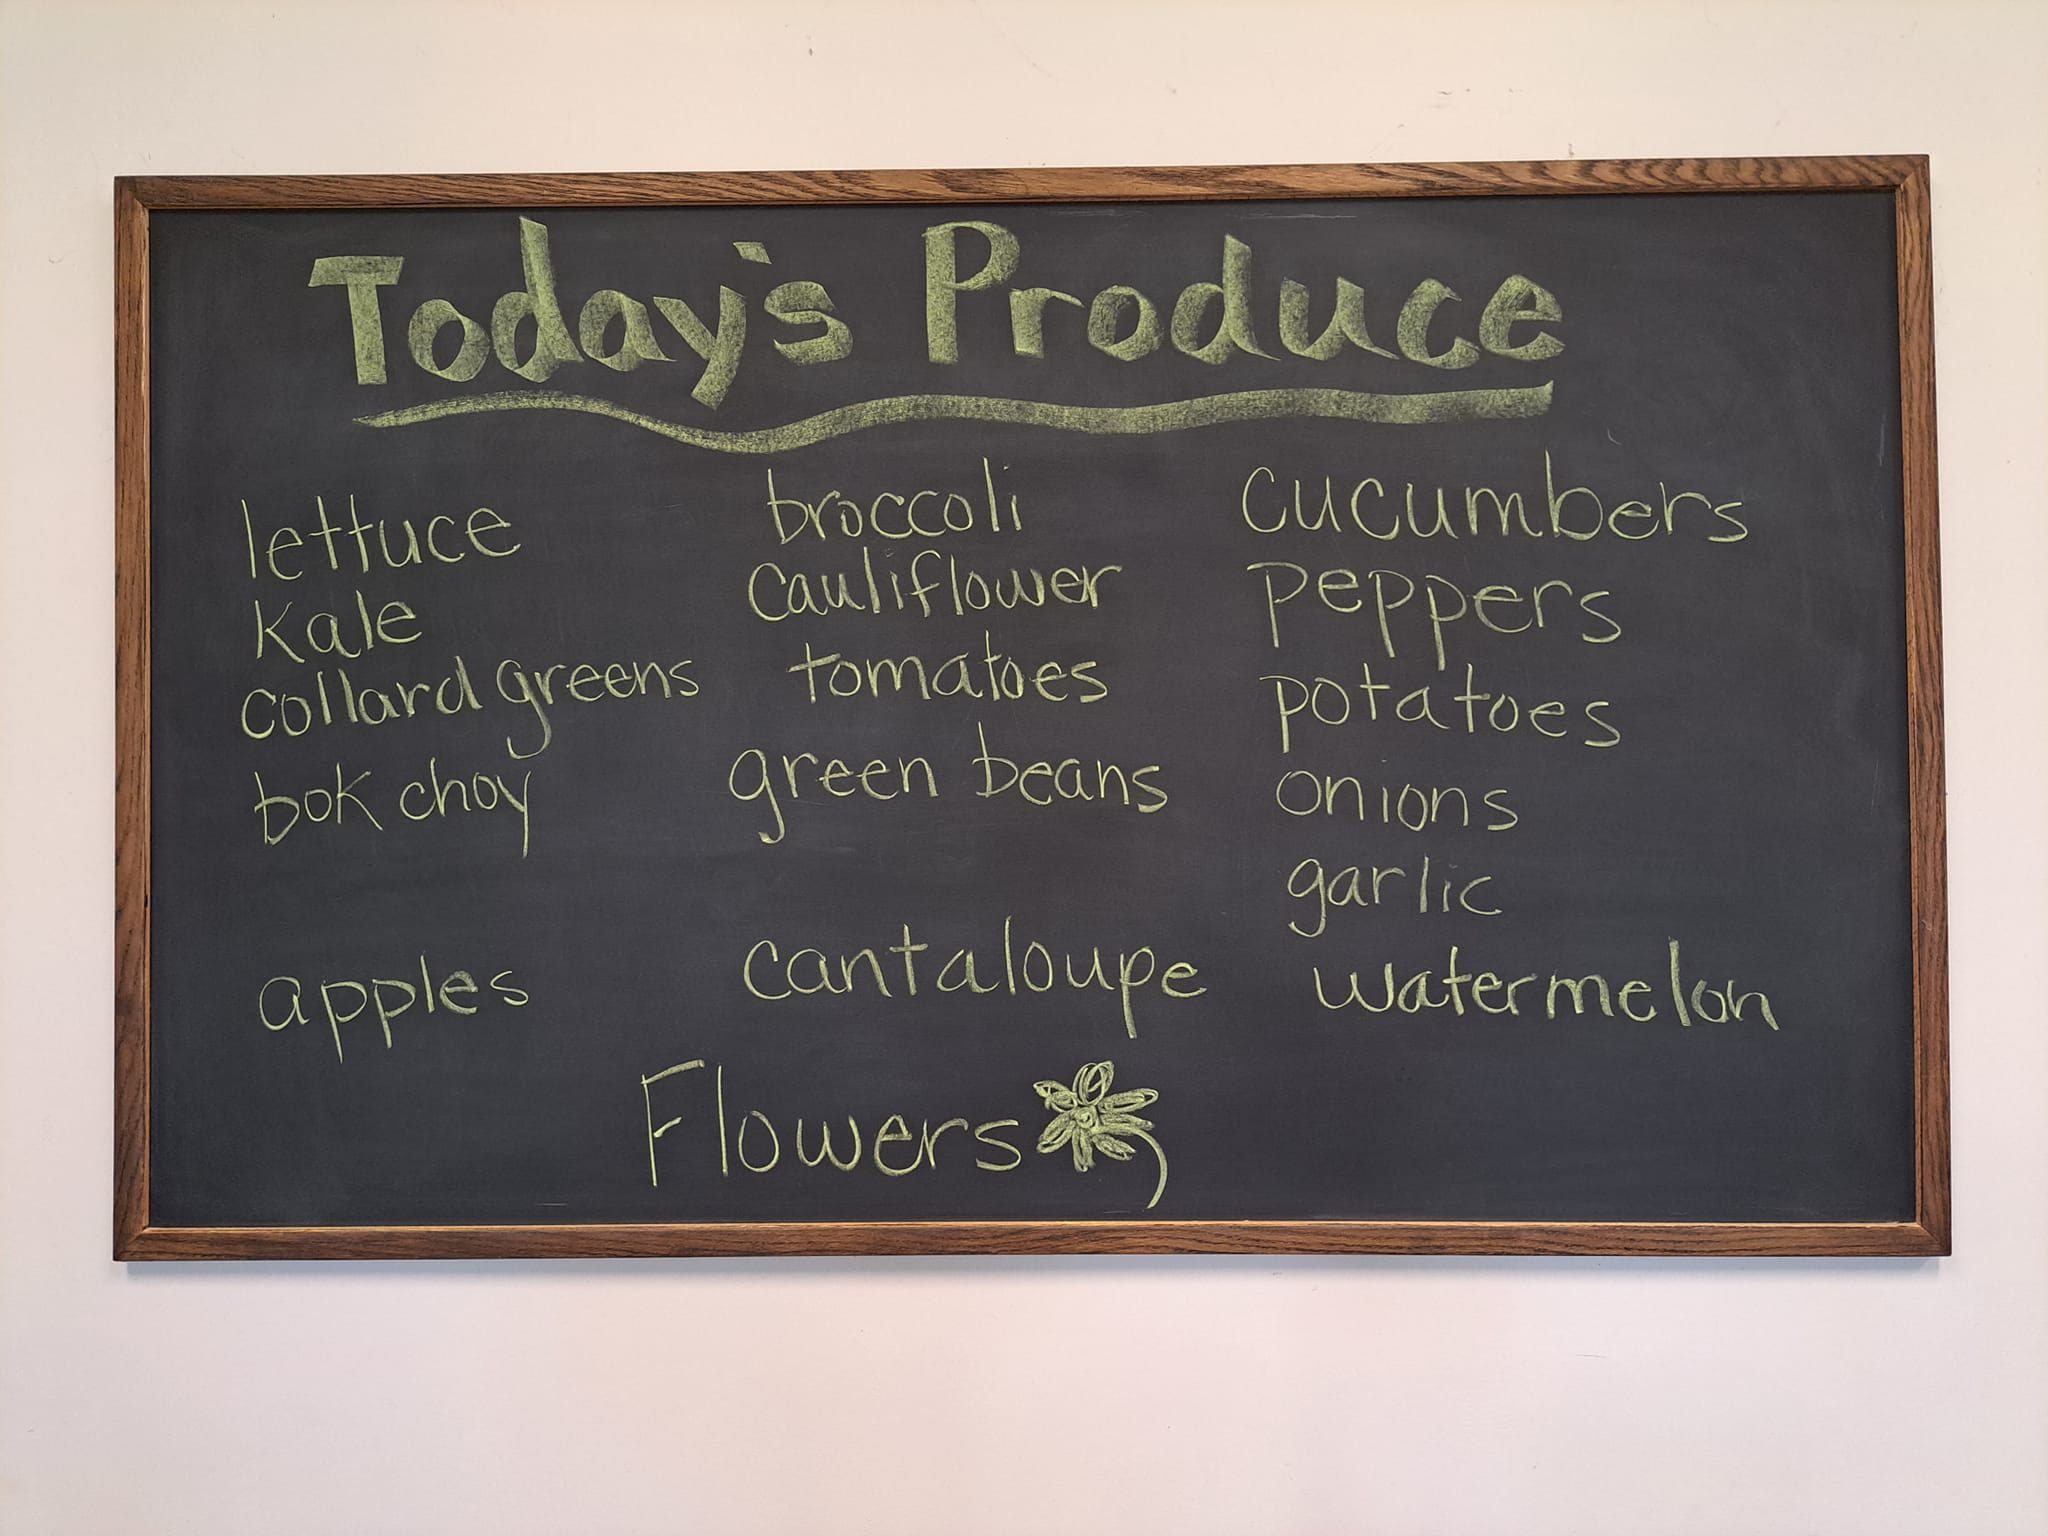 Today's Produce
lettuce
Kale
collard greens
bok choy
broccoli
cauliflower
tomatoes
green beans
cucumbers
peppers
potatoes
onions
garlic
apples
cantaloupe
watermelon
Flowers